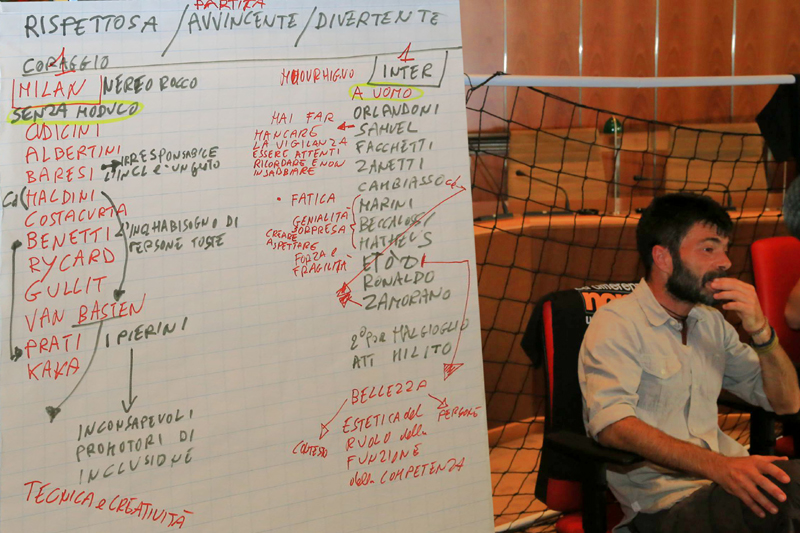 PARTITA
RISPETTOSA / AVVINCENTE / DIVERTENTE
CORAGGIO
1
MILAN NEREO ROCCO
SENZA MODULO
CUDICINI
ALBERTINI
BARESI
IRRESPONSABILE
L'INCL È UN GUTO
Cd (MALDINI
COSTACURTA
BENETTI
L'INQ HA BISOGNO DI
PERSONE TOSTE
RYCARD
GULLIT
VAN BASTEN
PRATI
I PIERINI
KAKA
INCONSAPEVOLI
PROMOTORI DI
INCLUSIONE
TECNICA e CREATIVITÀ
1
MOURHIGNO
INTER
A UOMO
ORLANDONI
SAMUEL
FACCHETTI
ZANETTI
CAMBIASSO
MARINI
BECCALOSSI
MATHEUS
ETO'O
RONALDO
ZAMORANO
MAI FAR
MANCARE
LA VIGILANZA
ESSERE ATTENTI
RICORDARE E NON
INSABBIARE
• FATICA
GENIALITÀ
SORPRESA
CREARE
ASPETTARE
FORZA E
FRAGILITÀ
2° POR MALGIOGLIO
ATT MILITO
BELLEZZA
CONTESTO
PERSONE
ESTETICA del
RUOLO della
FUNZIONE
della COMPETENZA